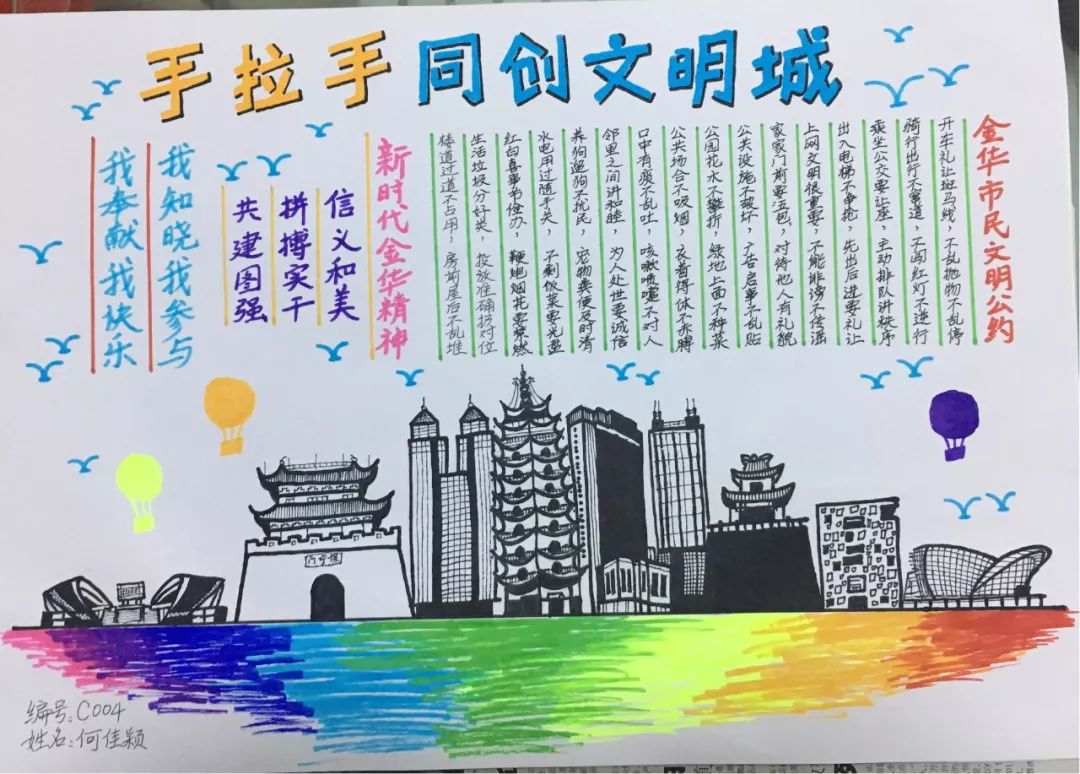 手拉手同创文明城
金华市民文明公约
开车礼让斑马线，不乱抛物不乱停
骑行出行不窜道，不闯红灯不逆行
乘坐公交要让座，主动排队讲秩序
出入电梯不争抢，先出后进要礼让
上网文明很重要，不能诽谤不传谣
家家门前要五包，对待他人有礼貌
公共设施不破坏，广告启事不乱贴
公园花水不攀折，绿地上面不种菜
公共场合不吸烟，衣着得体不赤膊
口中有痰不乱吐，咳嗽喷嚏不对人
邻里之间讲和睦，为人处世要诚信
养狗遛狗不扰民，宠物粪便及时清
水电用过随手关，不剩饭菜要光盘
红白喜事节俭办，鞭炮烟花要禁燃
生活垃圾分好类，投放准确扔对位
楼道过道不占用，房前屋后不乱堆
新时代金华精神
信义和美
拼搏实干
共建图强
我知晓我参与
我奉献我快乐
编号：C004
姓名：何佳颖